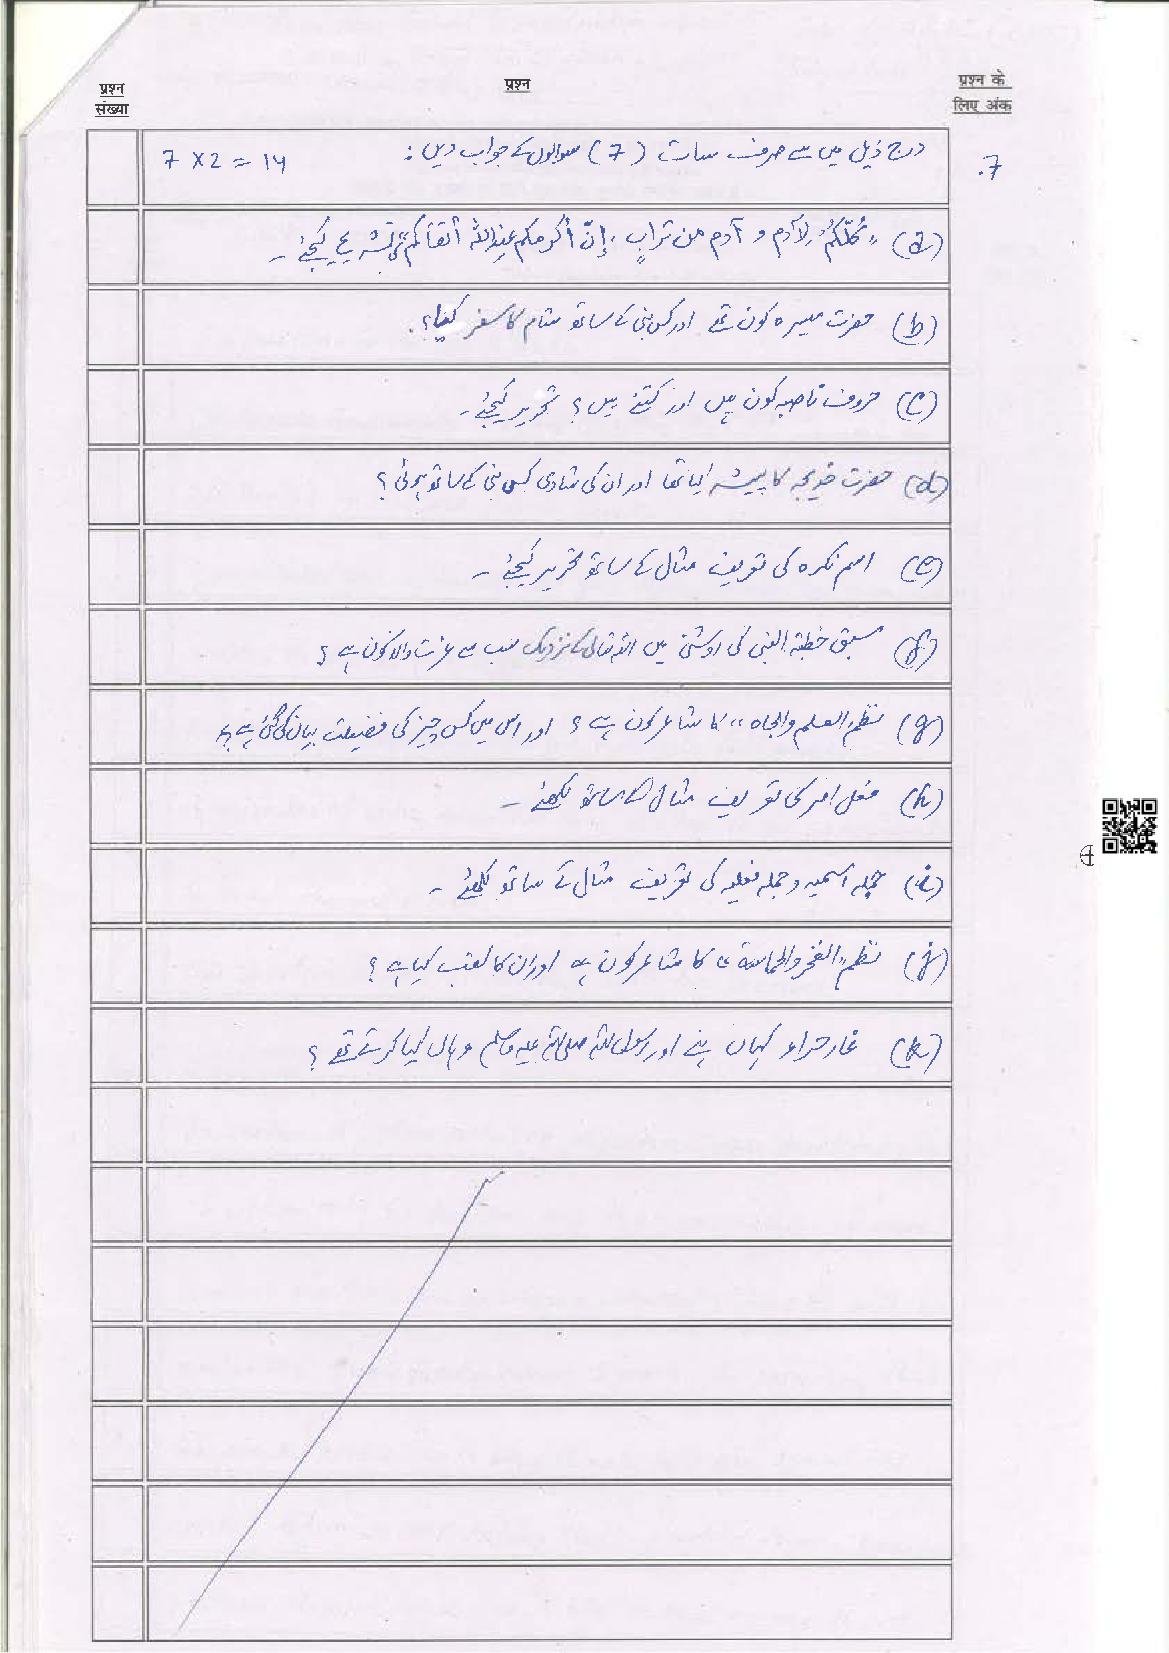 प्रश्न संख्या
प्रश्न
प्रश्न के लिए अंक
7. درج ذیل میں سے صرف سات (7) سوالوں کے جواب دیں: 7 x 2 = 14
(a) "کُلّکُم لِآدم و آدم من ترابٍ، إنّ أکرمکم عند اللہ أتقاکم" کی تشریح کیجئے۔
(b) حضرت میسرہ کون تھے اور کس نبی کے ساتھ شام کا سفر کیا؟
(c) حروف ناصبہ کون ہیں اور کتنے ہیں؟ تحریر کیجئے۔
(d) حضرت خدیجہ کا پیشہ کیا تھا اور ان کی شادی کس نبی کے ساتھ ہوئی؟
(e) اسم نکرہ کی تعریف مثال کے ساتھ تحریر کیجئے۔
(f) سبق خطبة النبی کی روشنی میں اللہ تعالی کے نزدیک سب سے عزت والا کون ہے؟
(g) نظم "العلم والجاہ" کا شاعر کون ہے؟ اور اس میں کس چیز کی فضیلت بیان کی گئی ہے؟
(h) فعل امر کی تعریف مثال کے ساتھ لکھئے۔
(i) جملہ اسمیہ و جملہ فعلیہ کی تعریف مثال کے ساتھ لکھئے۔
(j) نظم "الفخر والحماسة" کا شاعر کون ہے اور ان کا لقب کیا ہے؟
(k) غار حراء کہاں ہے اور رسول اللہ صلی اللہ علیہ وسلم وہاں کیا کرتے تھے؟